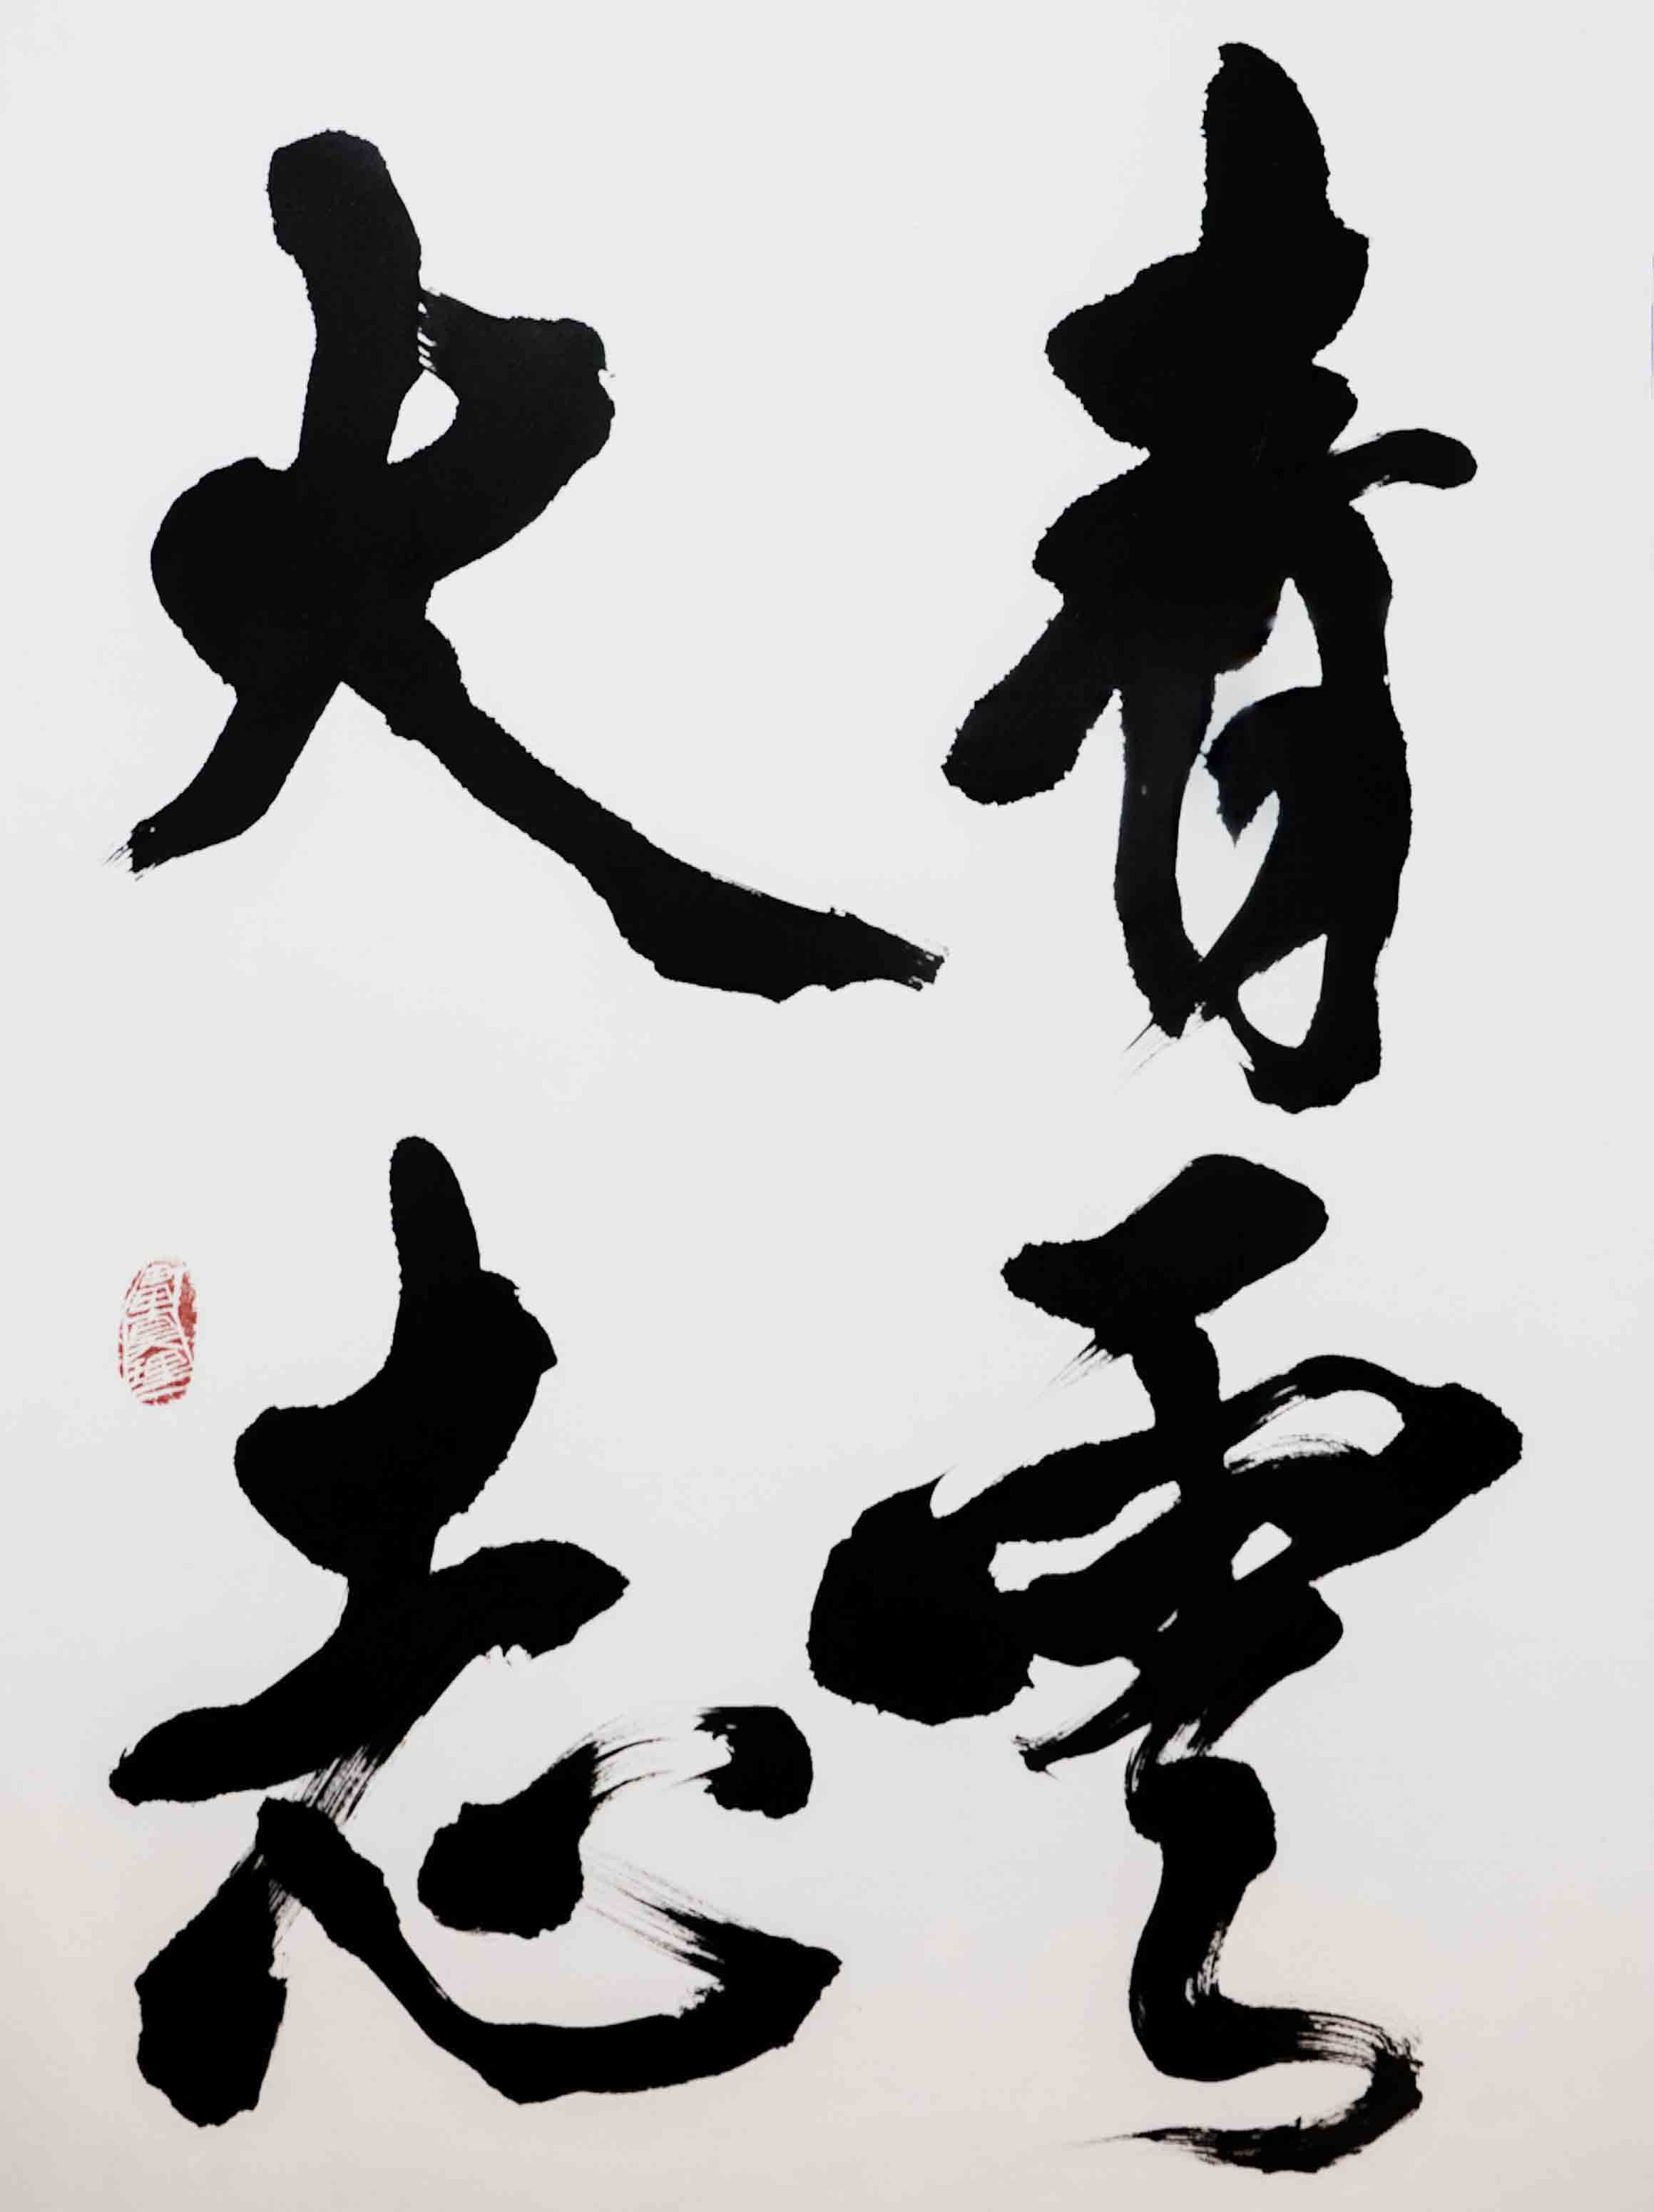 青雲
大志